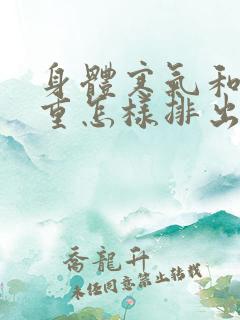 身體寒氣和
重怎樣排出
喬龍升
未經同意禁止轉載